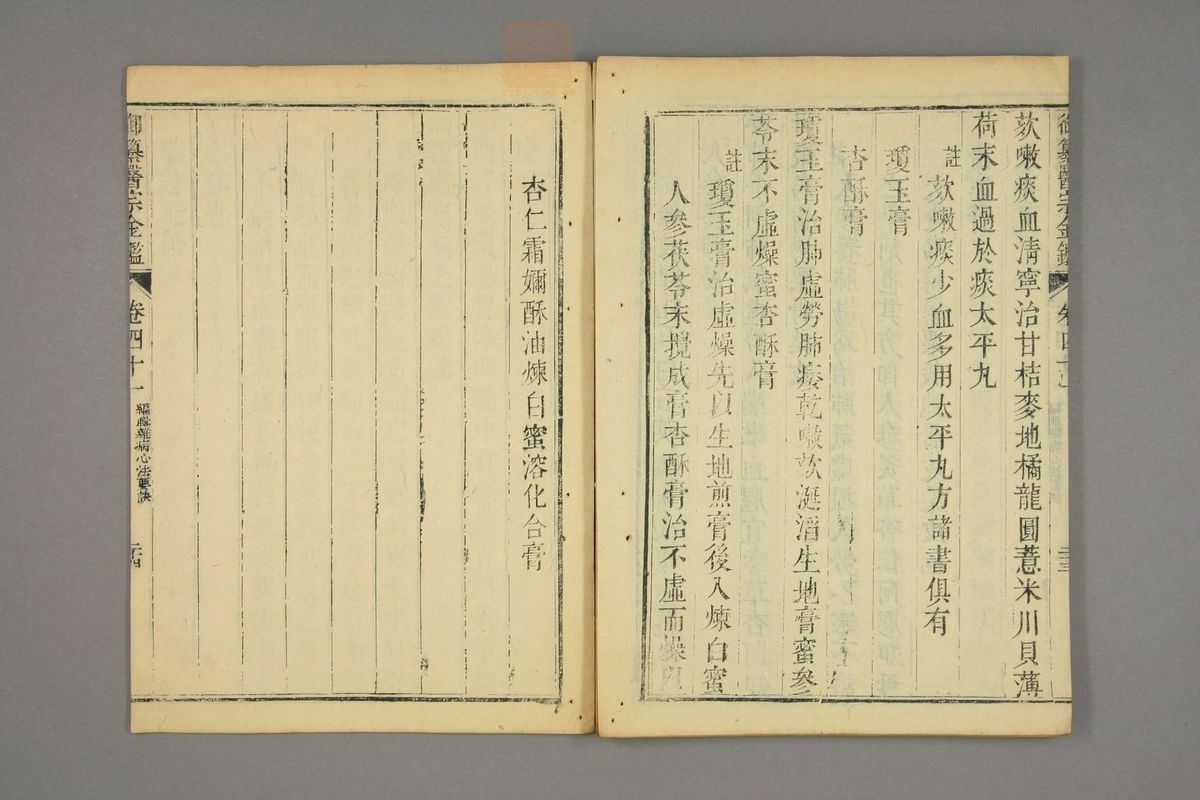 御纂醫宗金鑑 卷四十一 二十三
欬嗽痰血清寧治甘桔麥地橘龍圓薏米川貝薄
荷末血過於痰太平丸
註欬嗽痰少血多用太平丸方諸書俱有
瓊玉膏
杏酥膏
瓊玉膏治肺虛勞肺痿乾嗽欬涎滔生地膏蜜參
苓末不虛燥蜜杏酥膏
註瓊玉膏治虛燥先以生地煎膏後入煉白蜜
人參茯苓末攪成膏杏酥膏治不虛而燥以
杏仁霜嬭酥油煉白蜜溶化合膏
御纂醫宗金鑑 卷四十一 編輯雜病心法要訣 二十四